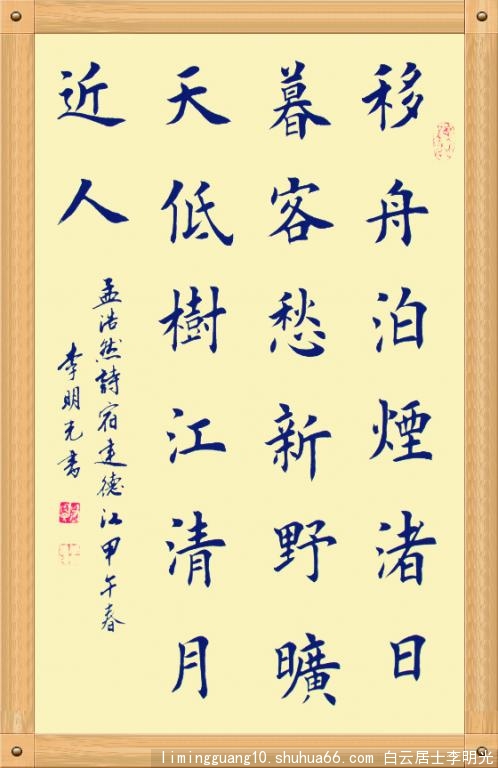 移舟泊煙渚日
暮客愁新野曠
天低樹江清月
近人
孟浩然詩宿建德江甲午春
李明光書
limingguang10.shuhua66.com 白云居士李明光